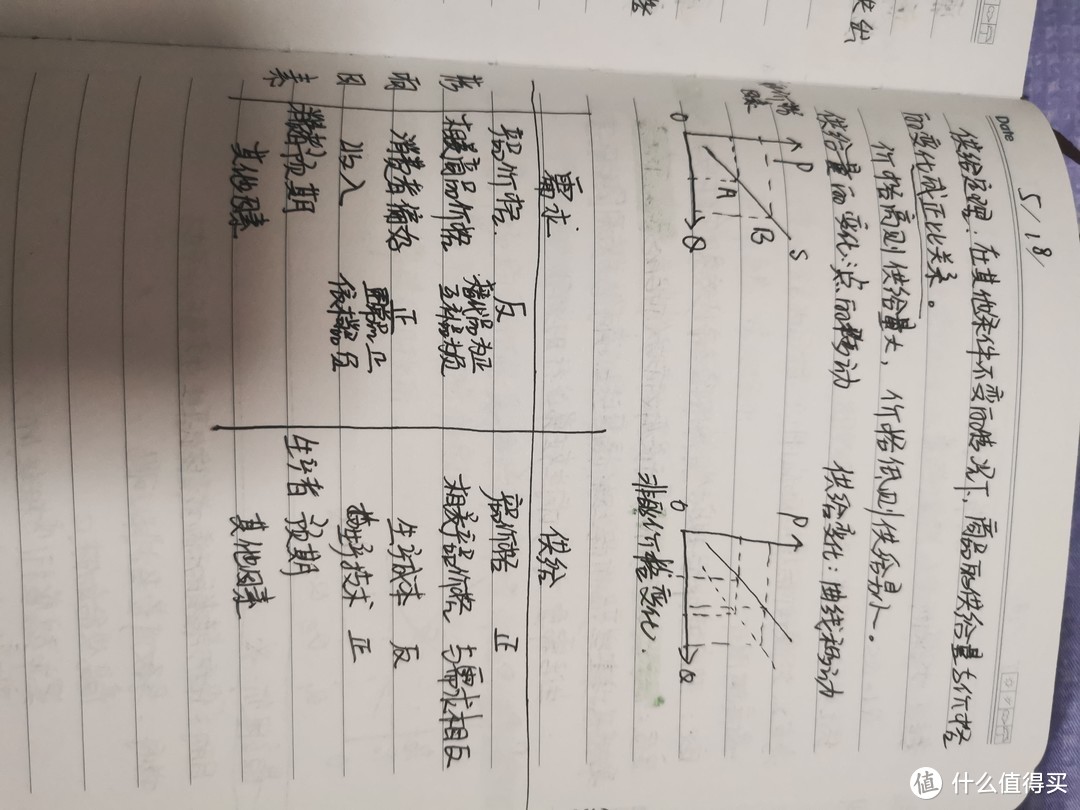 Date
5/18
供给定理：在其他条件不变的情况下，商品的供给量与价格
的变化成正比关系。
价格高则供给量大，价格低则供给量小。
供给量的变化：点的移动 供给变化：曲线移动
P
S
B
A
O
Q
P
O
Q
价格变化
需求 供给
影响因素
价格 反 价格 正
相关商品价格 替代品为正 互补品为负 相关产品价格 与需求相反
消费者偏好 正 生产成本 反
收入 正 低档品负 生产技术 正
消费者预期 生产者预期
其他因素 其他因素
值 什么值得买